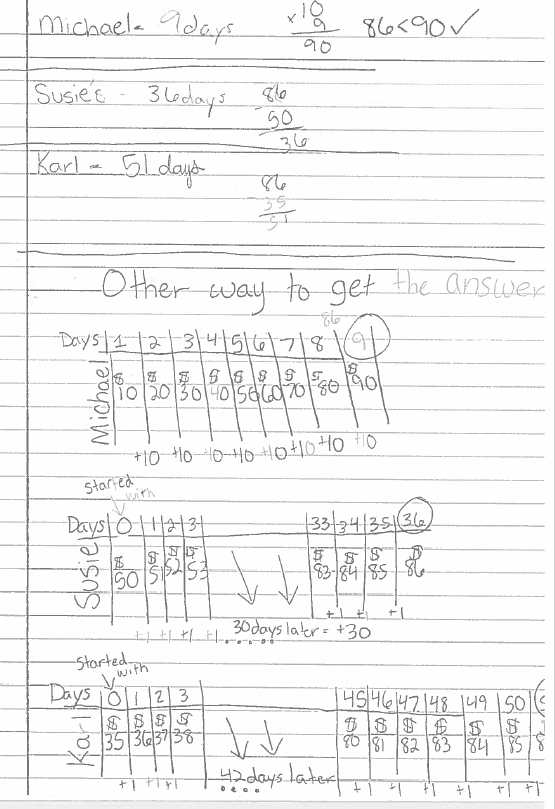 Michael - 9 days ×10 86<90 ✓
9
90
Susie's - 36 days 86
-50
36
Karl - 51 days
86
-35
51
Other way to get the answer
86
Days 1 2 3 4 5 6 7 8 9
Michael $10 $20 $30 $40 $50 $60 $70 $80 $90
+10 +10 +10 +10 +10 +10 +10 +10
Started with
Days 0 1 2 3 33 34 35 36
Susie $50 $51 $52 $53 $83 $84 $85 $86
+1 +1 +1 +1 30 days later = +30 +1 +1 +1
Started with
Days 0 1 2 3 45 46 47 48 49 50
Karl $35 $36 $37 $38 $80 $81 $82 $83 $84 $85 8
+1 +1 +1 42 days later +1 +1 +1 +1 +1 +1